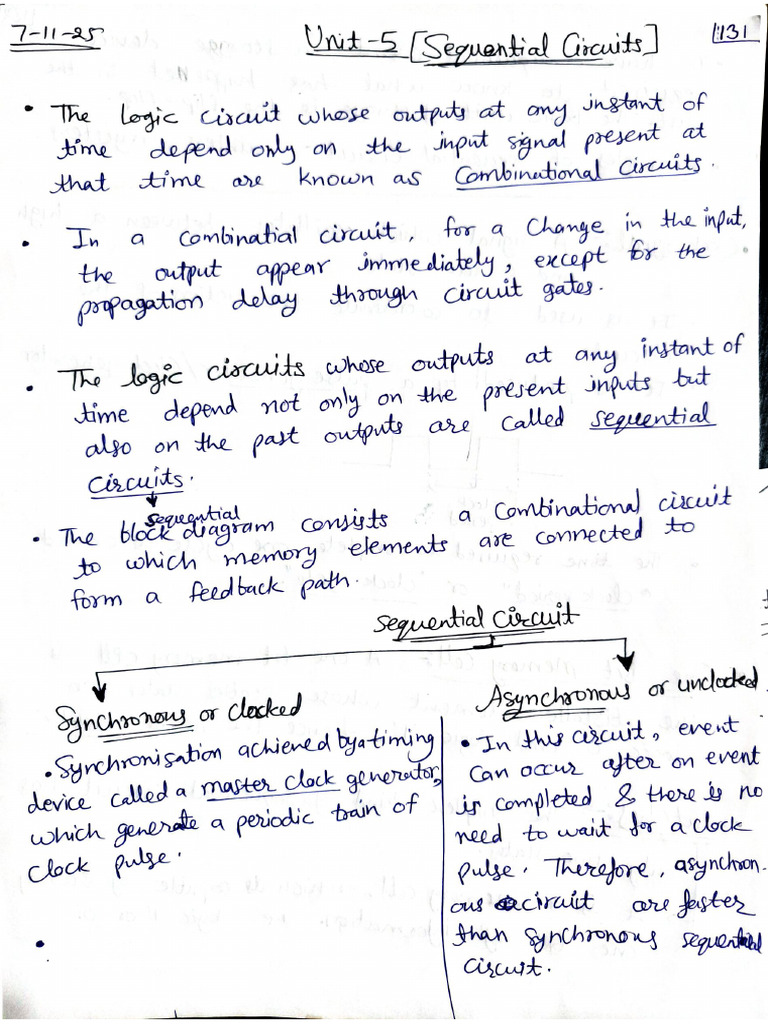 7-11-25
Unit-5 [Sequential Circuits]
131
• The logic circuit whose outputs at any instant of
time depend only on the input signal present at
that time are known as Combinational Circuits.
• In a combinatial circuit, for a Change in the input,
the output appear immediately, except for the
propagation delay through circuit gates.
• The logic circuits whose outputs at any instant of
time depend not only on the present inputs but
also on the past outputs are called sequential
Circuits.
sequential
• The block diagram consists a Combinational circuit
to which memory elements are connected to
form a feedback path.
Sequential Circuit
Synchronous or clocked
• Synchronisation achieved by a timing
device called a master clock generator,
which generate a periodic train of
clock pulse.
•
Asynchronous or unclocked
• In this circuit, event
can occur after on event
is completed & there is no
need to wait for a clock
pulse. Therefore, asynchron-
ous circuit are faster
than synchronous sequential
circuit.